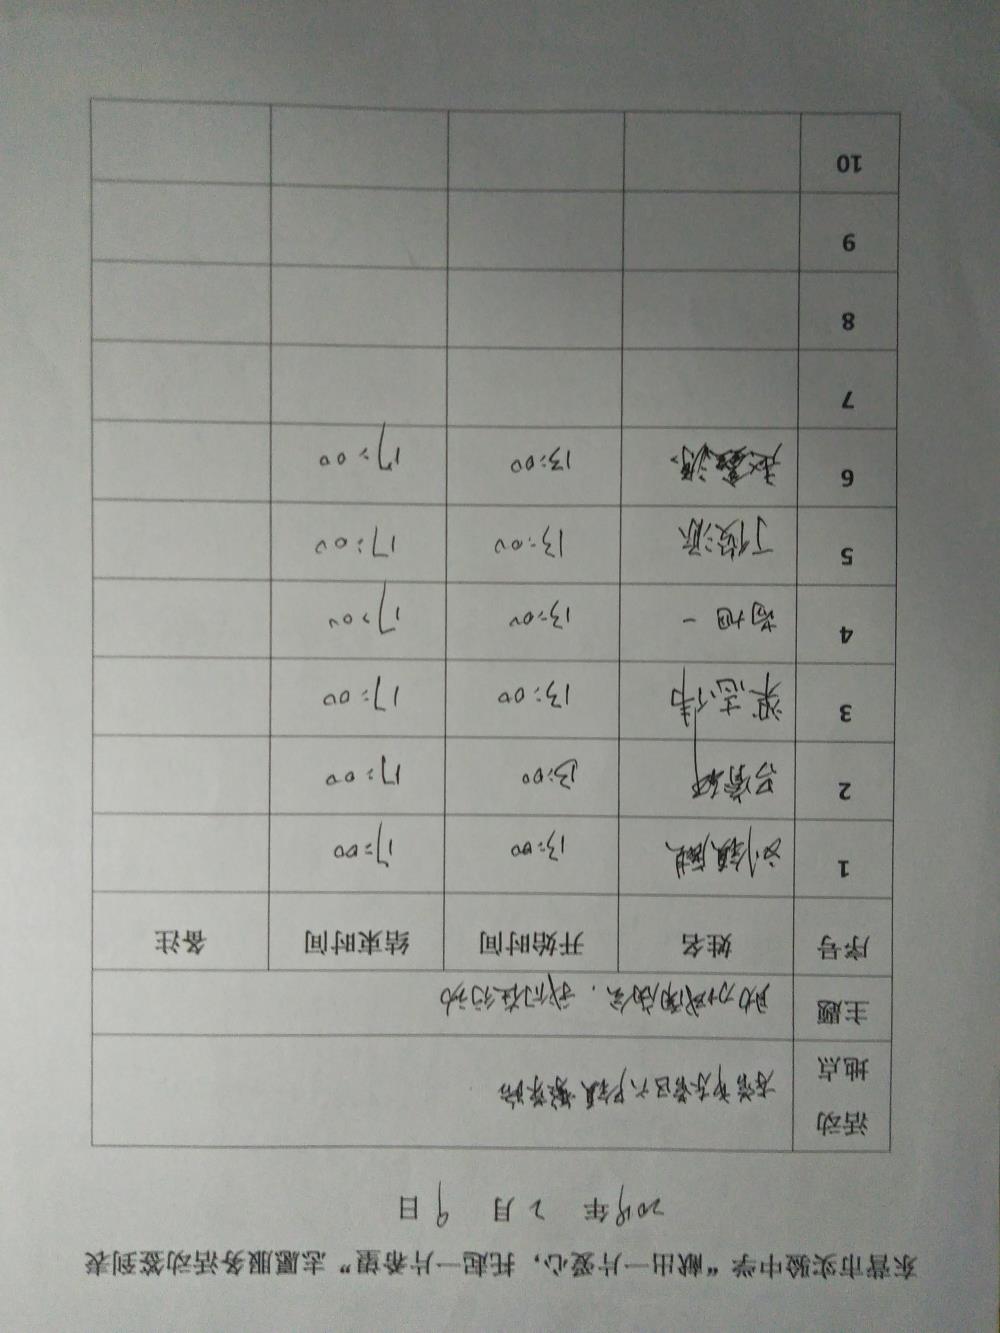 东营市实验中学“献出一片爱心，托起一片希望”志愿服务活动签到表
年 2月 9日
活动地点 东营市东营区六户镇
主题 我们在行动
序号 姓名 开始时间 结束时间 备注
1 13:00 17:00
2 13:00 17:00
3 梁志伟 13:00 17:00
4 旭一 13:00 17:00
5 丁俊源 13:00 17:00
6 赵鑫源 13:00 17:00
7
8
9
10